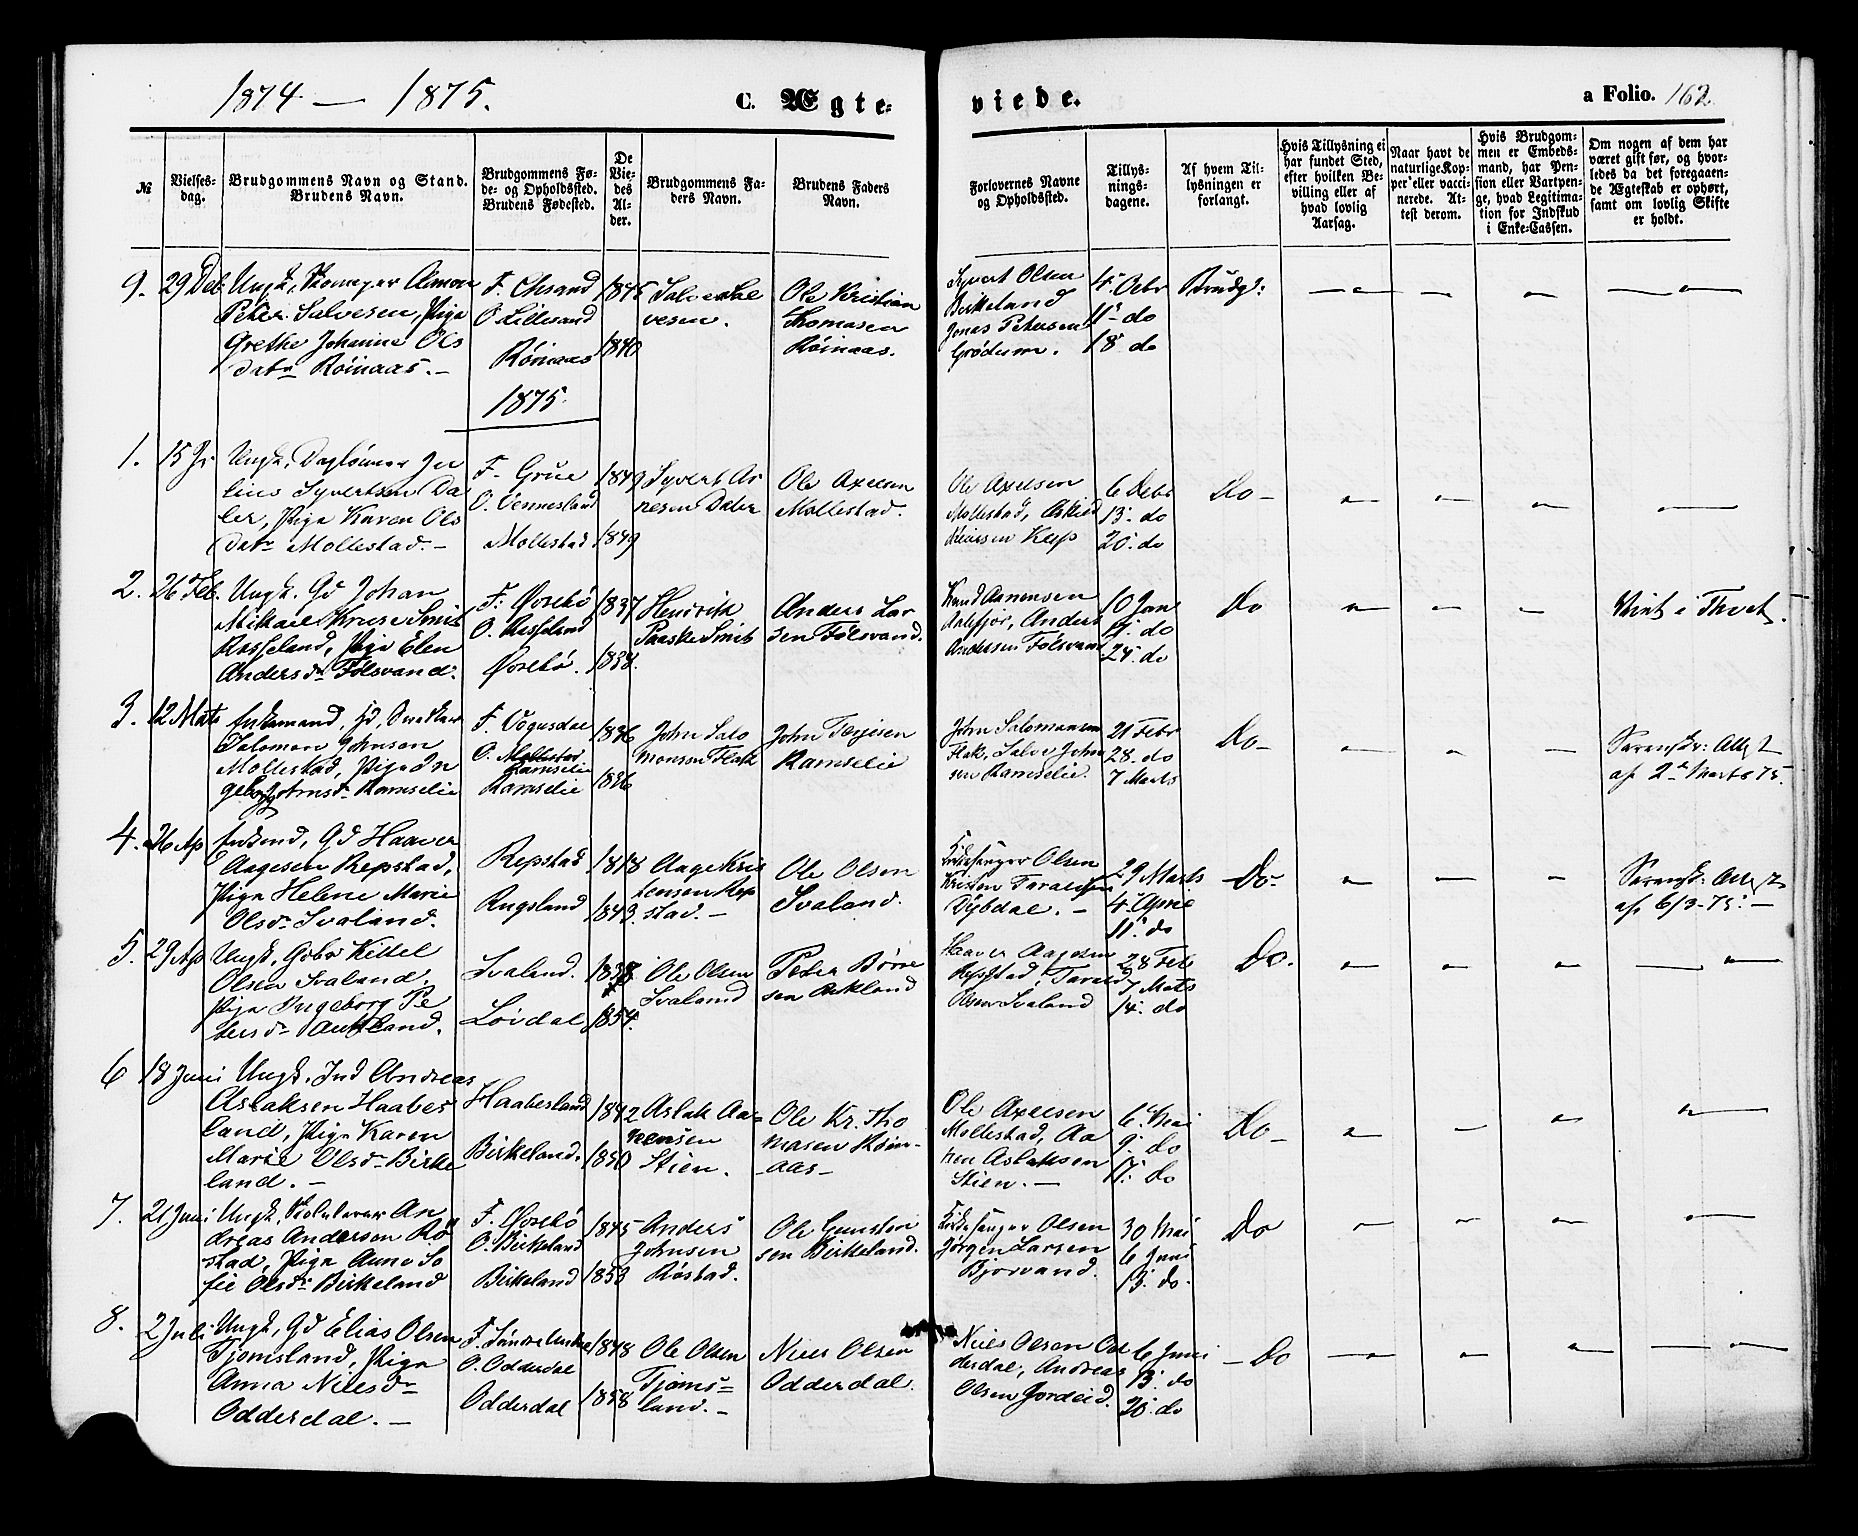 1874 — 1875.
C. Ægte-
viede.
a Folio. 162
№
Vielses-
dag.
Brudgommens Navn og Stand.
Brudens Navn.
Brudgommens Fø-
de- og Opholdssted.
Brudens Fødested.
De
Vie-
des
Al-
der.
Brudgommens Fa-
ders Navn.
Brudens Faders
Navn.
Forlovernes Navne
og Opholdssted.
Tillys-
nings-
dagene.
Af hvem Til-
lysningen er
forlangt.
Hvis Tillysning ei
har fundet Sted,
efter hvilken Be-
villing eller af
hvad lovlig
Aarsag.
Naar havt de
naturlige Kop-
per eller vacci-
nerede. At-
test derom.
Hvis Brudgom-
men er Embeds-
mand, har Pen-
sion eller Vartpen-
ge, hvad Legitima-
tion for Indskud
i Enke-Cassen.
Om nogen af dem har
været gift før, og hvor-
ledes da det foregaaen-
de Ægteskab er ophørt,
samt om lovlig Skifte
er holdt.
9.
29 Deb
Ungk,
Peter Salvesen, Pige
Grethe Johanne Ols
datr Röinaas. —
F. Chsand
O. Lillesand
Röinaas
1845
1840
Salve Sal
vesen.
Ole Kristian
Thomasen
Röinaas.
Syvert Olsen
Birkeland
Jonas Petersen
Grödum.
4. Debr
11. do
18 do
Brudg:
1875.
1.
15 Ja
Ungk, Daglönner
Syvertsen Da
ler, Pige Karen Ols
datr Mollestad. —
F. Grue
O. Vennesland
Mollestad
1849
1849
Syvert Ar
nesen Daler
Ole Axelsen
Mollestad.
Ole Axelsen
Mollestad,
6 Debr
13. do
20. do
Do —
2.
26 Feb.
Ungk. Gd Johan
Mikael Kruse Smit
Rosseland, Pige Elen
Andersdr Fölsvand.
F: Övrebö
O. Rosseland
Övrebö.
1837
1838.
Henrik
Paaske Smit
Anders Lar
sen Fölsvand.
Knud Aanensen
Anders
Andersen Fölsvand
10 Jan
do
24. do
Do
Viet i Thvet.
3.
12 Mats
Enkemand, Gd,
Salomon Johnsen
Mollestad, Pige In
geborg Johnsdr Ramselie
F. Vegusdal
O. Mollestad
Ramselie
Ramselie
1836
1836
John Salo
monsen Flak
John Terjesen
Ramselie
John Salomonsen
Flak, Salve John
sen Ramselie.
21 Febr
28. do
7 Marts
Do —
Sorenskr: Attest
af 2d Marts 75.
4.
26 Ap
Enkmd, Gd Haaver
Aagesen Repstad,
Pige Helene Marie
Olsdr Svaland.
Repstad
Rugsland
1818
1843.
Aage Kris
tensen Rep
stad. —
Ole Olsen
Svaland.
Kirkesanger Olsen
Kristen Taraldsen
Dybdal. —
29 Marts
4. April
11. do
Do —
Sorenskr: Attest
af 6/3-75. —
5.
29 Ap
Ungk, Gbr Kittel
Olsen Svaland.
Pige Ingeborg Pe
tersdr
Svaland.
Lövdal
1838
1854.
Ole Olsen
Svaland
Peter Börre
sen
Haaver Aagesen
Repstad, Tarald
Olsen Svaland
28 Feb
7 Mats
14. do
Do.
6
18 Juni
Ungk. Ind Andreas
Aslaksen Haabes
land, Pige Karen
Marie Olsdr Birke
land. —
Haabesland
Birkeland.
1842
1850
Aslak Aa-
nensen
Stien.
Ole Kr. Tho
masen Röin-
aas —
Ole Axelsen
Mollestad, Aa
nen Aslaksen
Stien. —
6. Mai
9. do
17. do
Do —
7.
21 Juni
Ungk, Skolelærer An
dreas Andersen Rö
stad, Pige Anne So
fie Olsdr Birkeland
F. Övrebö
O. Birkeland
Birkeland
1845
1853
Anders
Johnsen
Röstad.
Ole Gunsten
sen Birkeland.
Kirkesanger Olsen
Jörgen Larsen
Bjorvand.
30 Mai
6 Juni
13. do.
Do
8.
2 Juli
Ungk, Gd Elias Olsen
Tjomsland, Pige
Anna Nilsdr
Odderdal. —
F. Söndre Undal
O. Odderdal
Odderdal
1848
1858
Ole Olsen
Tjoms-
land. —
Niels Olsen
Odderdal.
Niels Olsen Od
derdal, Andreas
Olsen Jordeid.
6 Juni
13. do
20. do
— Do